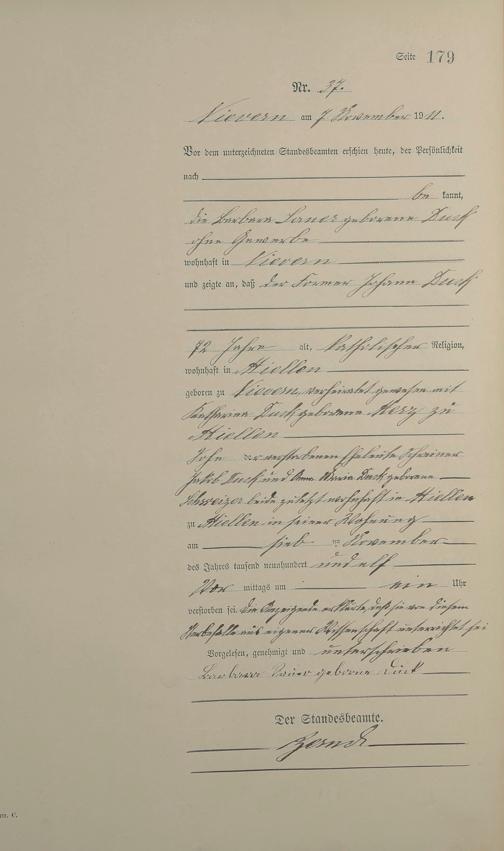 Seite 179
Nr. 37.
Nievern am 7 November 1911.
Vor dem unterzeichneten Standesbeamten erschien heute, der Persönlichkeit
nach
be kannt,
die Barbara Sauer geborene Duck
ohne Gewerbe
wohnhaft in Nievern
und zeigte an, daß der Former Johann Duck
72 Jahre alt, katholischer Religion,
wohnhaft in Miellen
geboren zu Nievern, verheiratet gewesen mit
Katharina Duck geborene Herz zu
Miellen
Sohn der verstorbenen Eheleute Schreiner
Jakob Duck und Anna Maria Duck geborene
Schweizer beide zuletzt wohnhaft in Miellen
zu Miellen in seiner Wohnung
am November
des Jahres tausend neunhundert und elf
Vor mittags um ein Uhr
verstorben sei. Die Anzeigende erklärte, daß sie von diesem
Sterbefalle aus eigener Wissenschaft unterrichtet sei
Vorgelesen, genehmigt und unterschrieben
Barbara Sauer geborne Duck
Der Standesbeamte.